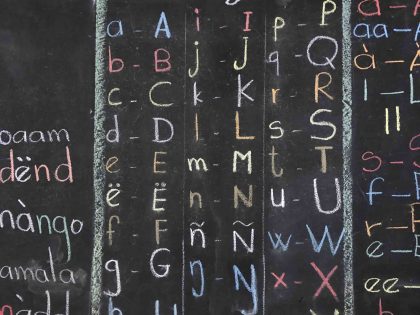 oaam
dënd
nàngo
amala
a - A
b - B
c - C
d - D
e - E
ë - Ë
f - F
g - G
i - I
j - J
k - K
l - L
m - M
n - N
ñ - Ñ
ŋ - Ŋ
p - P
q - Q
r - R
s - S
t - T
u - U
w - W
x - X
a — A
aa — A
à — A
s — S
f —
r —
e —
ee —